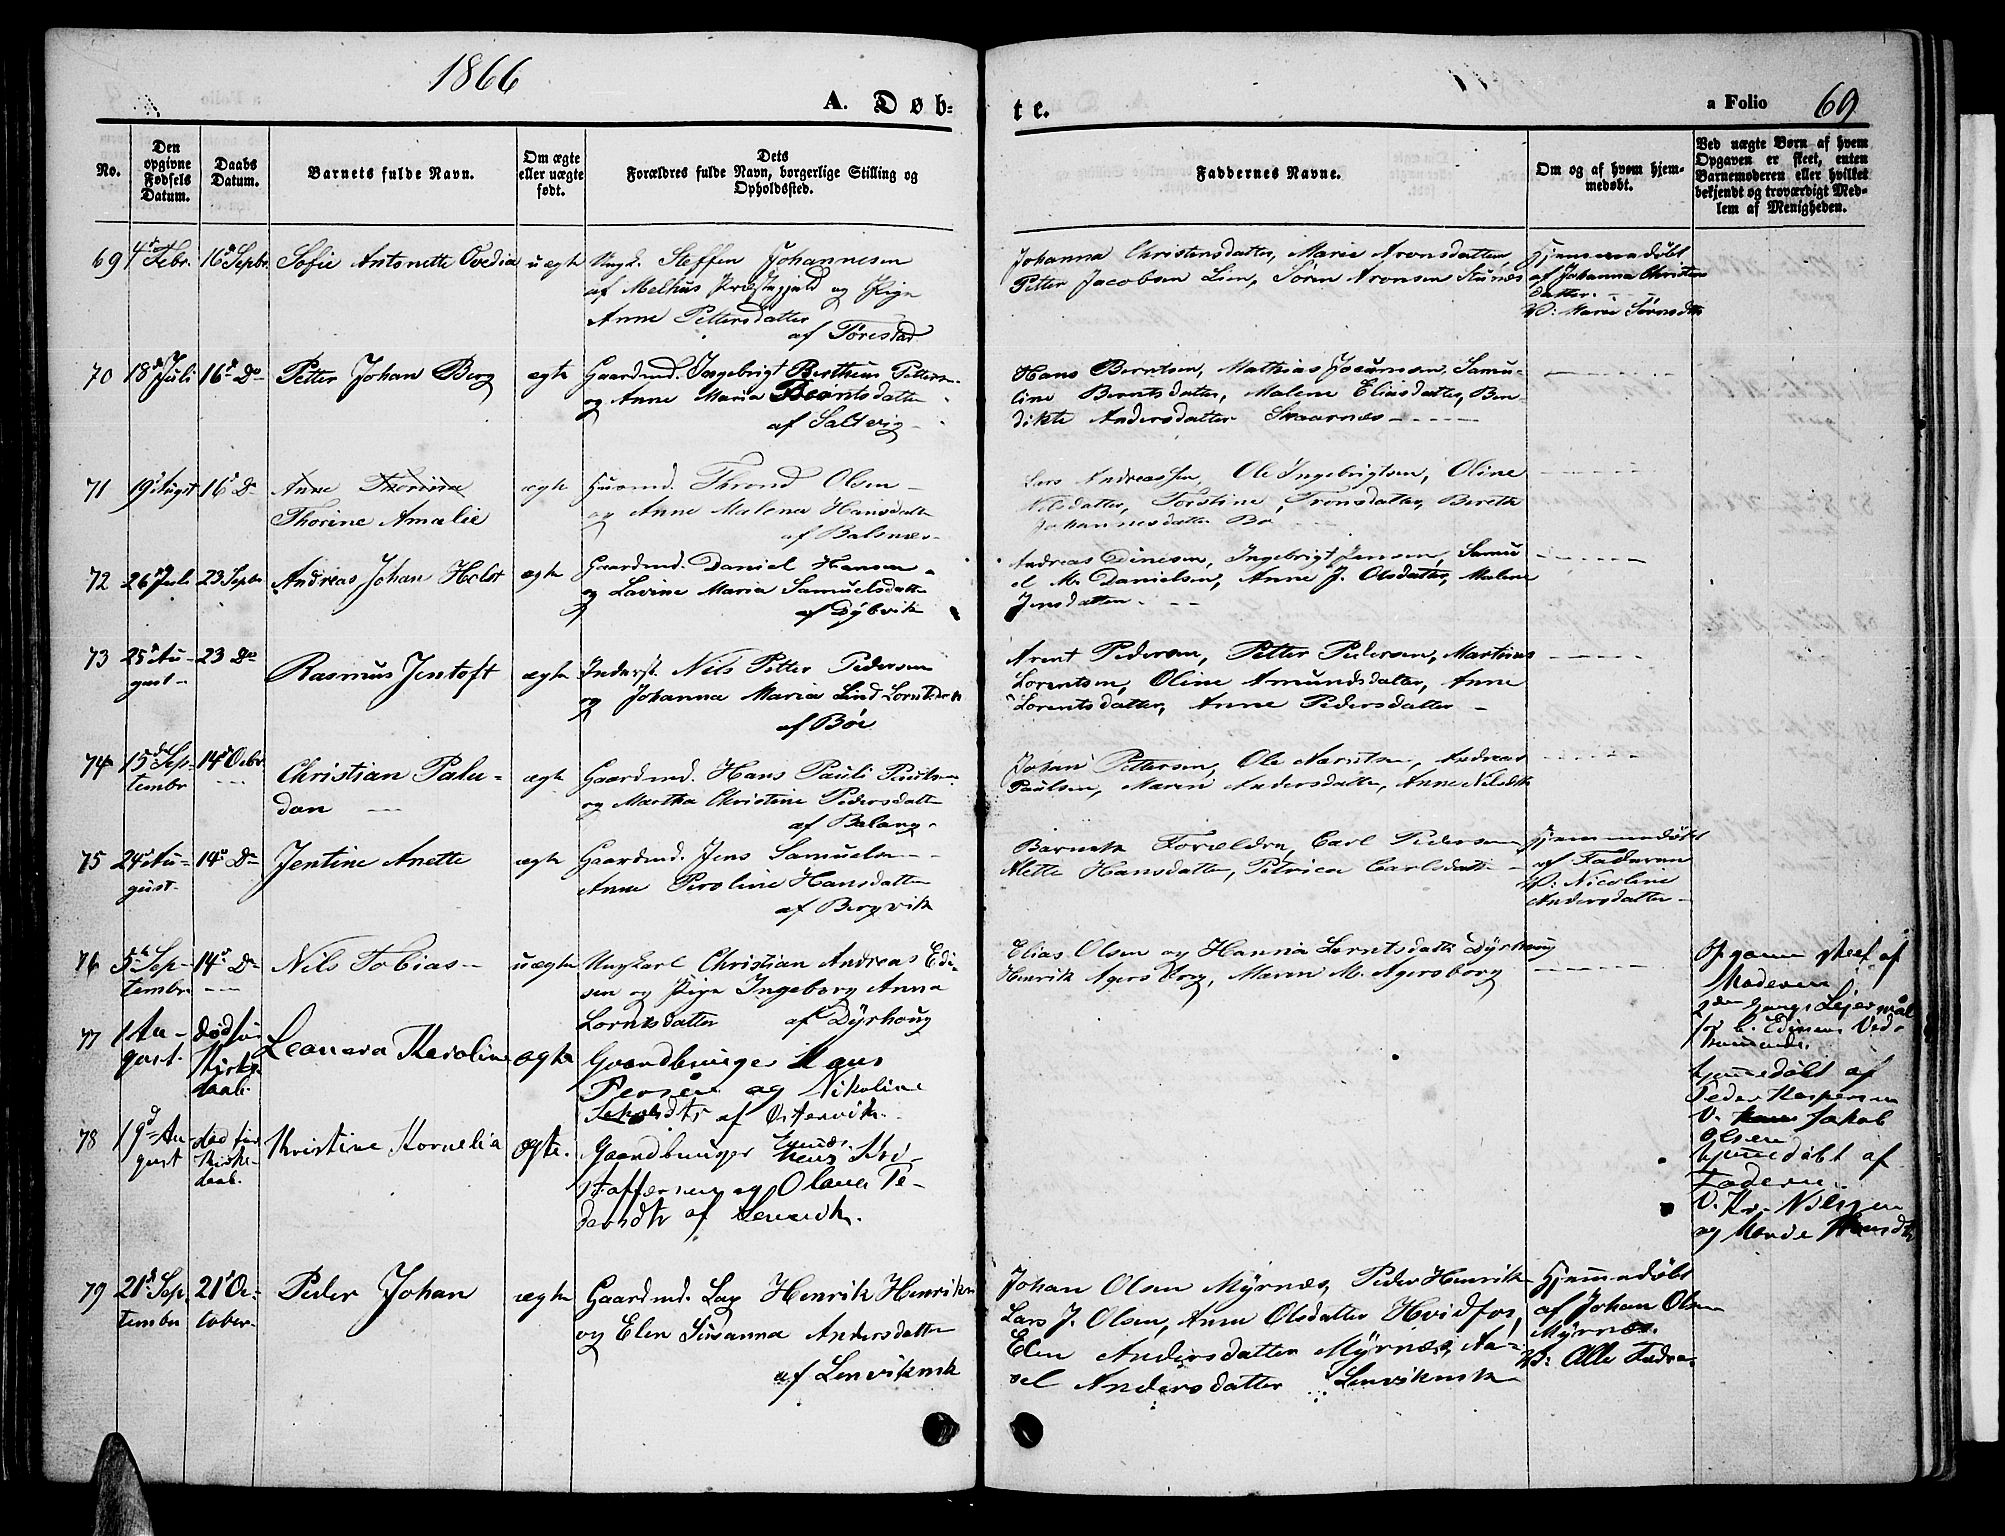 1866
A. Døb=
te.
a Folio 69
No.
Den opgivne Fødsels Datum.
Daabs Datum.
Barnets fulde Navn.
Om ægte eller uægte født.
Dets Forældres fulde Navn, borgerlige Stilling og Opholdssted.
Faddernes Navne.
Om og af hvem hjemmedøbt.
Ved uægte Børn af hvem Opgaven er skeet, enten Barnemoderen eller hvilket bekjendt og troværdigt Medlem af Menigheden.
69 4de Febr. 16d Sepbr. Sofie Antonette Ovedia uægte Ungk. Steffen Johannesen
af Melhus Præstegjæld og Pige
Anne Pettersdatter
af Torestad
Johanna Christensdatter, Marie Aronsdatter,
Petter Jacobsen Lien, Sören Aronsen
Hjemmedøbt
af Johanna Christens
datter.
V: Marie
70 18d Juli 16d Do Petter Johan Berg ægte Gaardmd. Ingebrigt Bertheus Petters.
og Anne Maria Berntsdatter
af Saltvig
Hans Berntsen, Mathias Joramsen, Samu-
line Berntsdatter, Malene Eliasdatter, Ben-
dikte Andersdatter Skaarnæs
71 19d Augst 16d Do Anne Thorina ægte Huusmd. Thrond Olsen
Thorine Amalie og Anne Malena Hansdatter
af Balsnæs
Lars Andreassen, Ole Ingebrigtsen, Oline
Nilsdatter, Torstine Tronsdatter, Bereth
Johannesdatter Bø
72 26d Juli 23 Sepbr Andreas Johan Holst ægte Gaardmd. Daniel Hansen
og Lavine Maria Samuelsdatter
af Dybvik
Andreas Dinesen, Ingebrigt Jensen, Samu
el M. Danielsen, Anne J. Olsdatter, Malene
Jensdatter.
73 25d Au-
gust 23 Do Rasmus Jentoft ægte Inderst. Nils Petter Pedersen
og Johanna Maria Lind Lorntsdtr
af Bøe
Arent Pedersen, Petter Pedersen, Martinus
Lorentsen, Oline Amundsdatter, Anne
Lorentsdatter, Anne Pedersdatter
74 15de Sep-
tembr 14d Octbr Christian Palu-
dan ægte Gaardmd. Hans Pauli Paulsen
og Martha Christine Pedersdatter
af Balang
Johan Pettersen, Ole Arntsen, Andreas
Paulsen, Maren Andersdatter, Anne Nilsdtr
75 24d Au-
gust. 14d Do Jentine Anette ægte Gaardmd. Jens Samuelsen
Anne Peroline Hansdatter
af Bergvik
Barnets Forældre, Carl Pedersen
Alette Hansdatter, Petrica Carlsdatter
Hjemmedøbt
af Faderen
V: Nicoline
Andersdatter
76 5te Sep-
tembr 14d Do Nils Tobias uægte Ungkarl Christian Andreas Edi-
sen og Pige Ingeborg Anna
Lorntsdatter af Dyrhoug
Elias Olsen og Hanna Lorntsdatter Dyrhoug
Henrik Agersborg, Maren M. Agersborg
Opgaven skeet af
Moderen
2den Gangs Leiermål
for C. Edisens Ved-
kommende.
77 1 Au-
gust. død før
Kirke-
daab. Leonora Karoline ægte Gaardbruger Hans
Persen og Nikoline
Jakobsdtr af Østervik.
hjemmedøbt af
Peder Kaspersen
V. Jakob
Olsen
78 19d Au-
gust død før
Kirke-
daab. Kristine Kornelia ægte. Gaardbruger Kri-
stoffersen og Olava Pe-
dersdtr af Lenvik.
hjemmedøbt af
Faderen.
V. Kr. Nilssen
og
79 21d Sep-
tembr 21d Oc-
tober Peder Johan ægte Gaardmd. Lap Henrik Henriksen
og Elen Susanna Andersdatter
af Lenvikmrk
Johan Olsen Myrnæs, Peder Henrik-
Lars J. Olsen, Anne Olsdatter Hvidfos,
Elen Andersdatter Myrnæs, Aa-
sel Andersdatter Lenvikmrk
Hjemmedøbt
af Johan Olsen
Myrnæs.
V: Alle Faddere